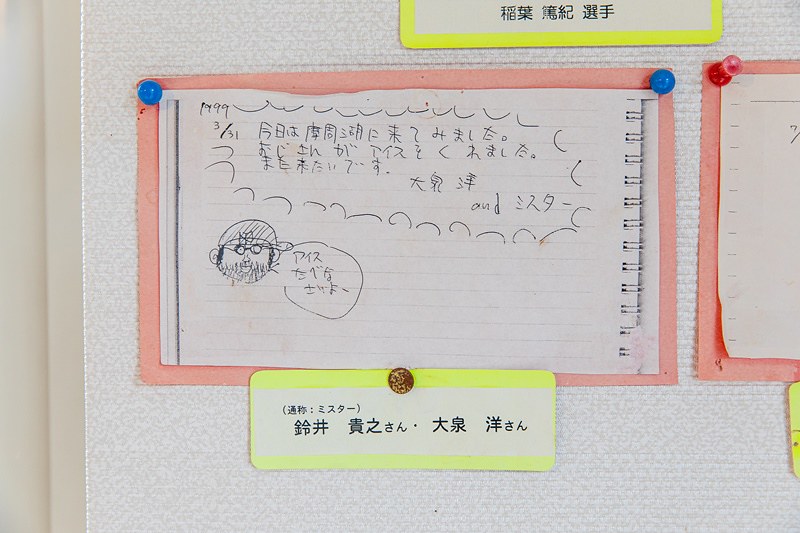 稲葉 篤紀 選手
1999
3/31 今日は摩周湖に来てみました。
おじさんがアイスをくれました。
また来たいです。
大泉 洋
and ミスター
アイス
たべな
さいよー
(通称:ミスター)
鈴井 貴之さん・大泉 洋さん